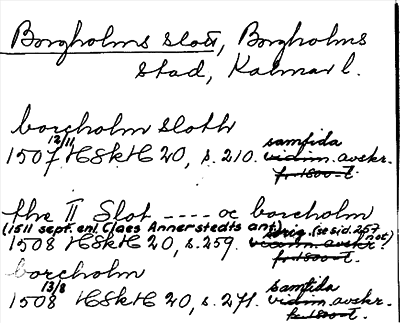 Borgholms slott, Borgholms
stad, Kalmar l.
borcholm sloth
samtida
1507 12/11 HSkH 20, s. 210. vidim. avskr.
fr. 1800-t.
the II Slot ---- oc borcholm
(1511 sept. enl. Claes Annerstedts ant.) orig. (se sid. 257 not)
1508 HSkH 20, s. 259. vidim. avskr.
fr. 1800-t.
borcholm
samtida
1508 13/8 HSkH 20, s. 271. vidim. avskr.
fr. 1800-t.